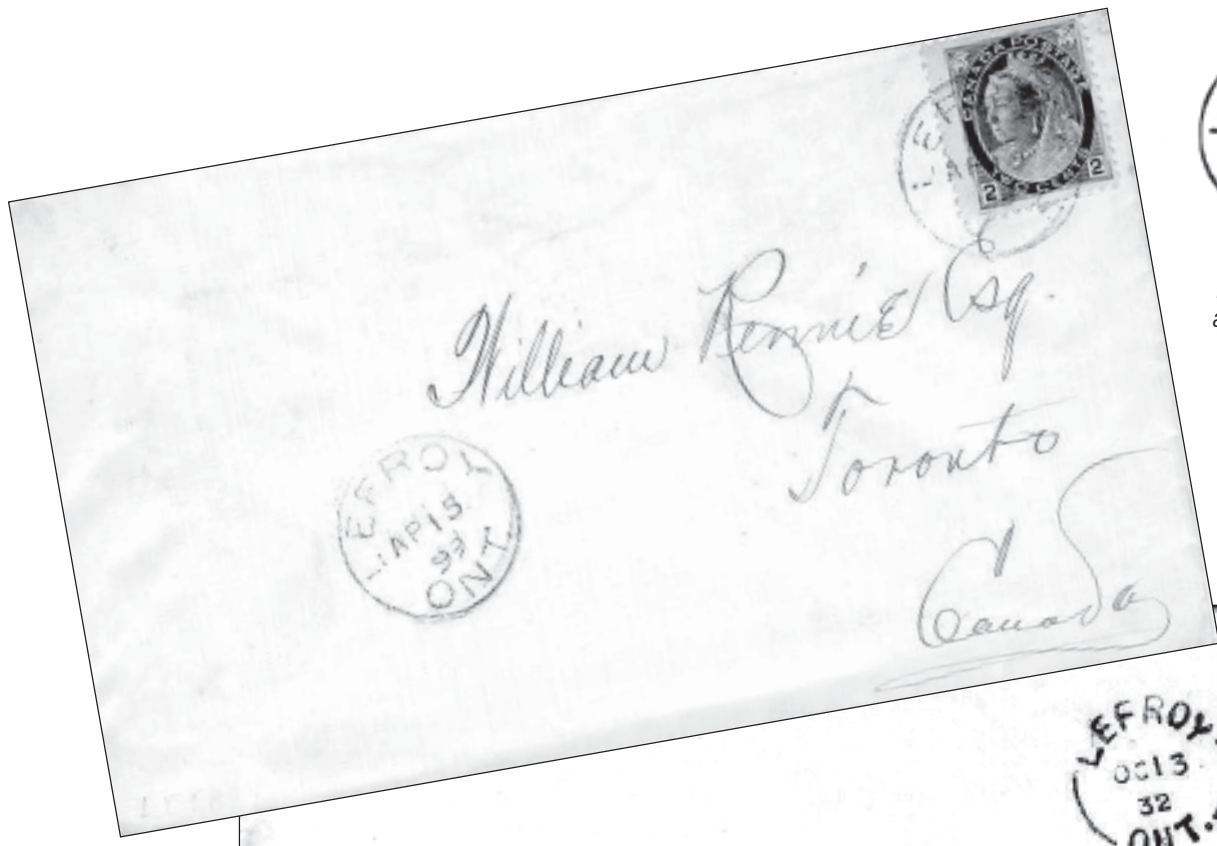 CANADA POSTAGE
2 2
William Rennie Esq.
Toronto
Canada
LEFROY
AP 15
ONT.
LEFROY
OC 13
32
ONT.